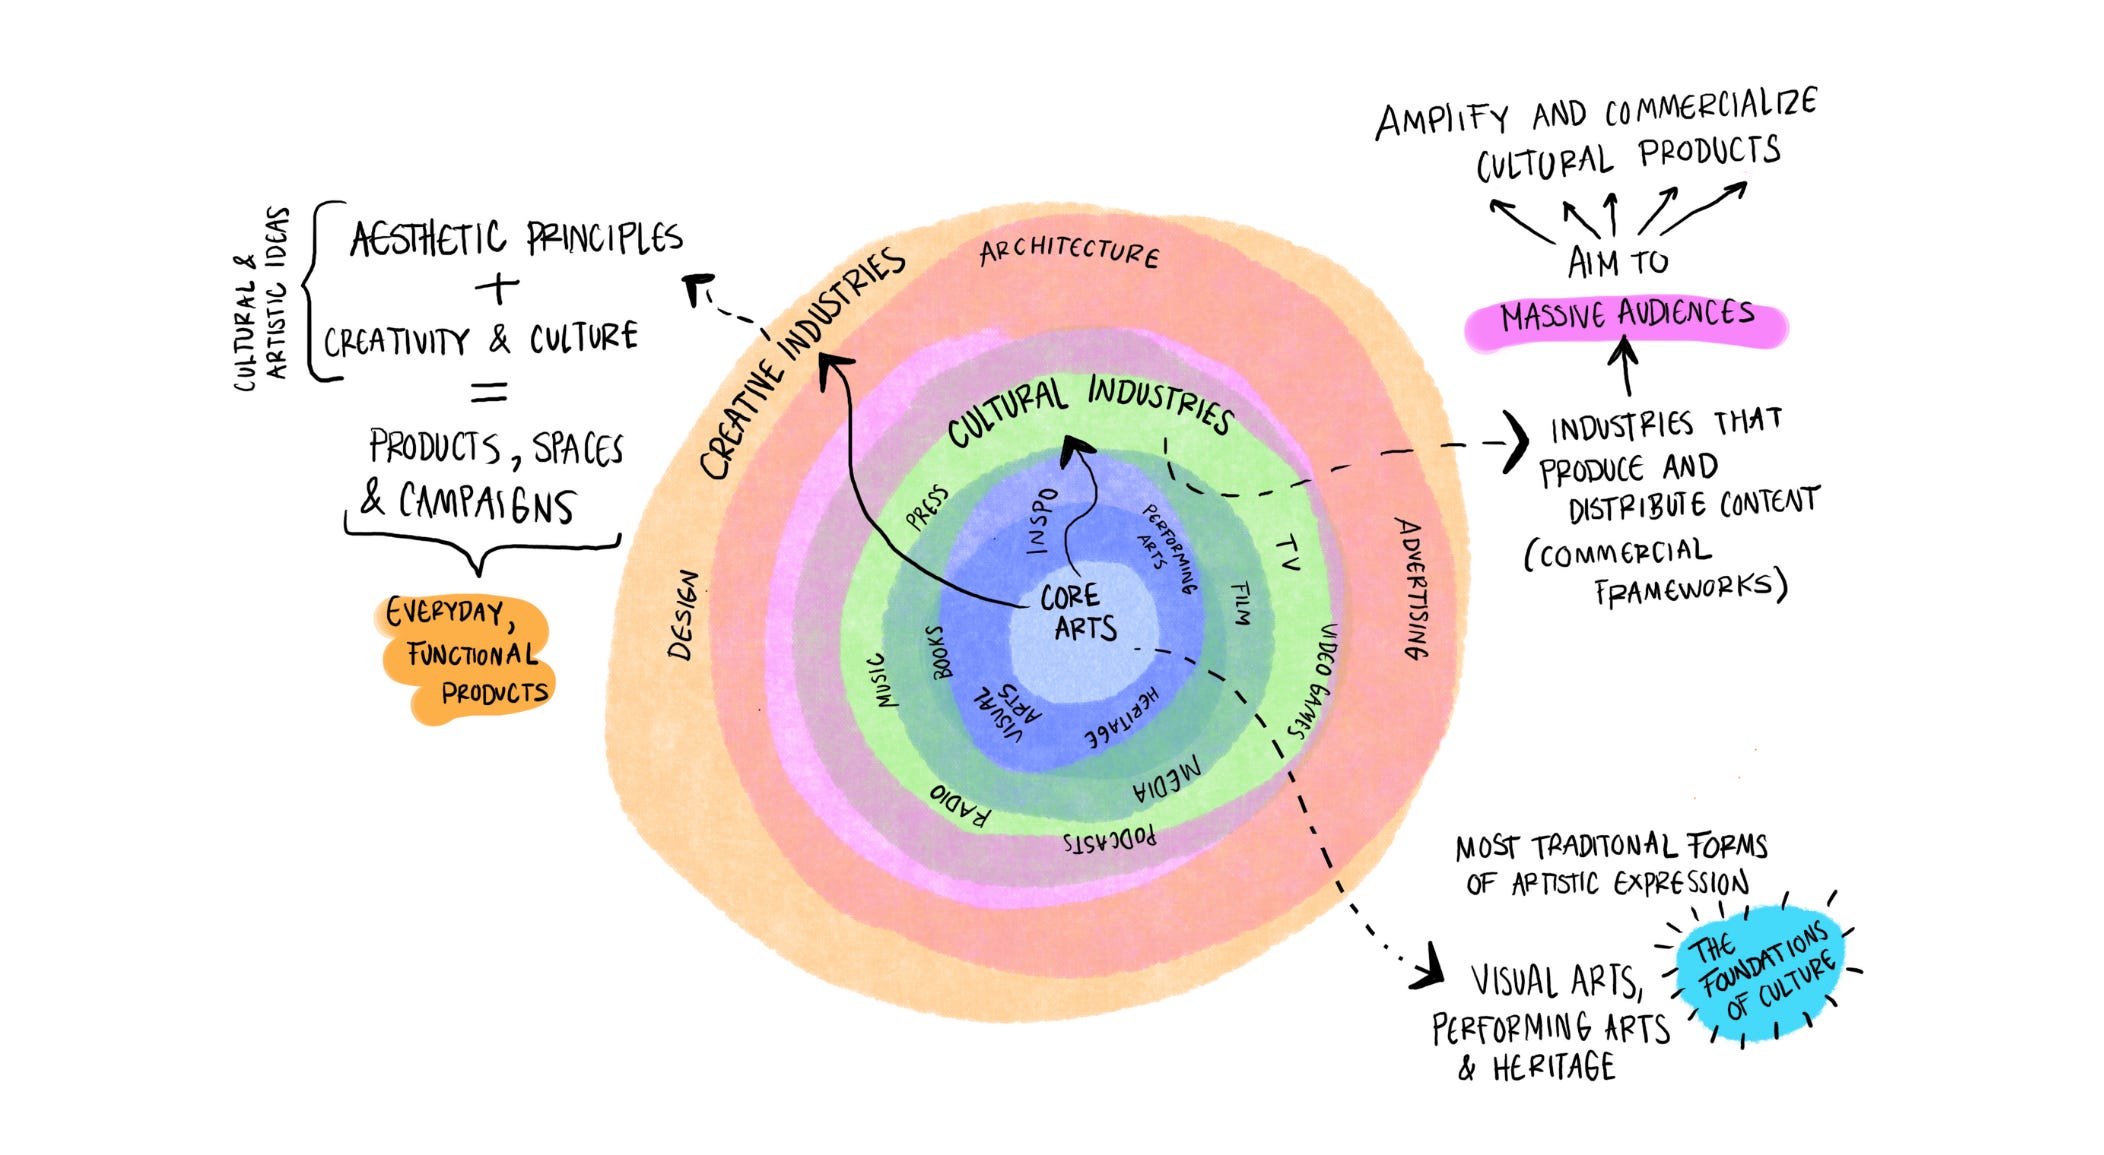 CULTURAL &
ARTISTIC IDEAS
AESTHETIC PRINCIPLES
+
CREATIVITY & CULTURE
=
PRODUCTS, SPACES
& CAMPAIGNS
EVERYDAY,
FUNCTIONAL
PRODUCTS
CREATIVE INDUSTRIES
ARCHITECTURE
ADVERTISING
DESIGN
CULTURAL INDUSTRIES
PRESS
TV
FILM
VIDEO GAMES
MUSIC
BOOKS
RADIO
MEDIA
PODCASTS
INSPO
PERFORMING
ARTS
CORE
ARTS
VISUAL
ARTS
HERITAGE
AMPLIFY AND COMMERCIALIZE
CULTURAL PRODUCTS
AIM TO
MASSIVE AUDIENCES
INDUSTRIES THAT
PRODUCE AND
DISTRIBUTE CONTENT
(COMMERCIAL
FRAMEWORKS)
MOST TRADITONAL FORMS
OF ARTISTIC EXPRESSION
THE
FOUNDATIONS
OF CULTURE
VISUAL ARTS,
PERFORMING ARTS
& HERITAGE